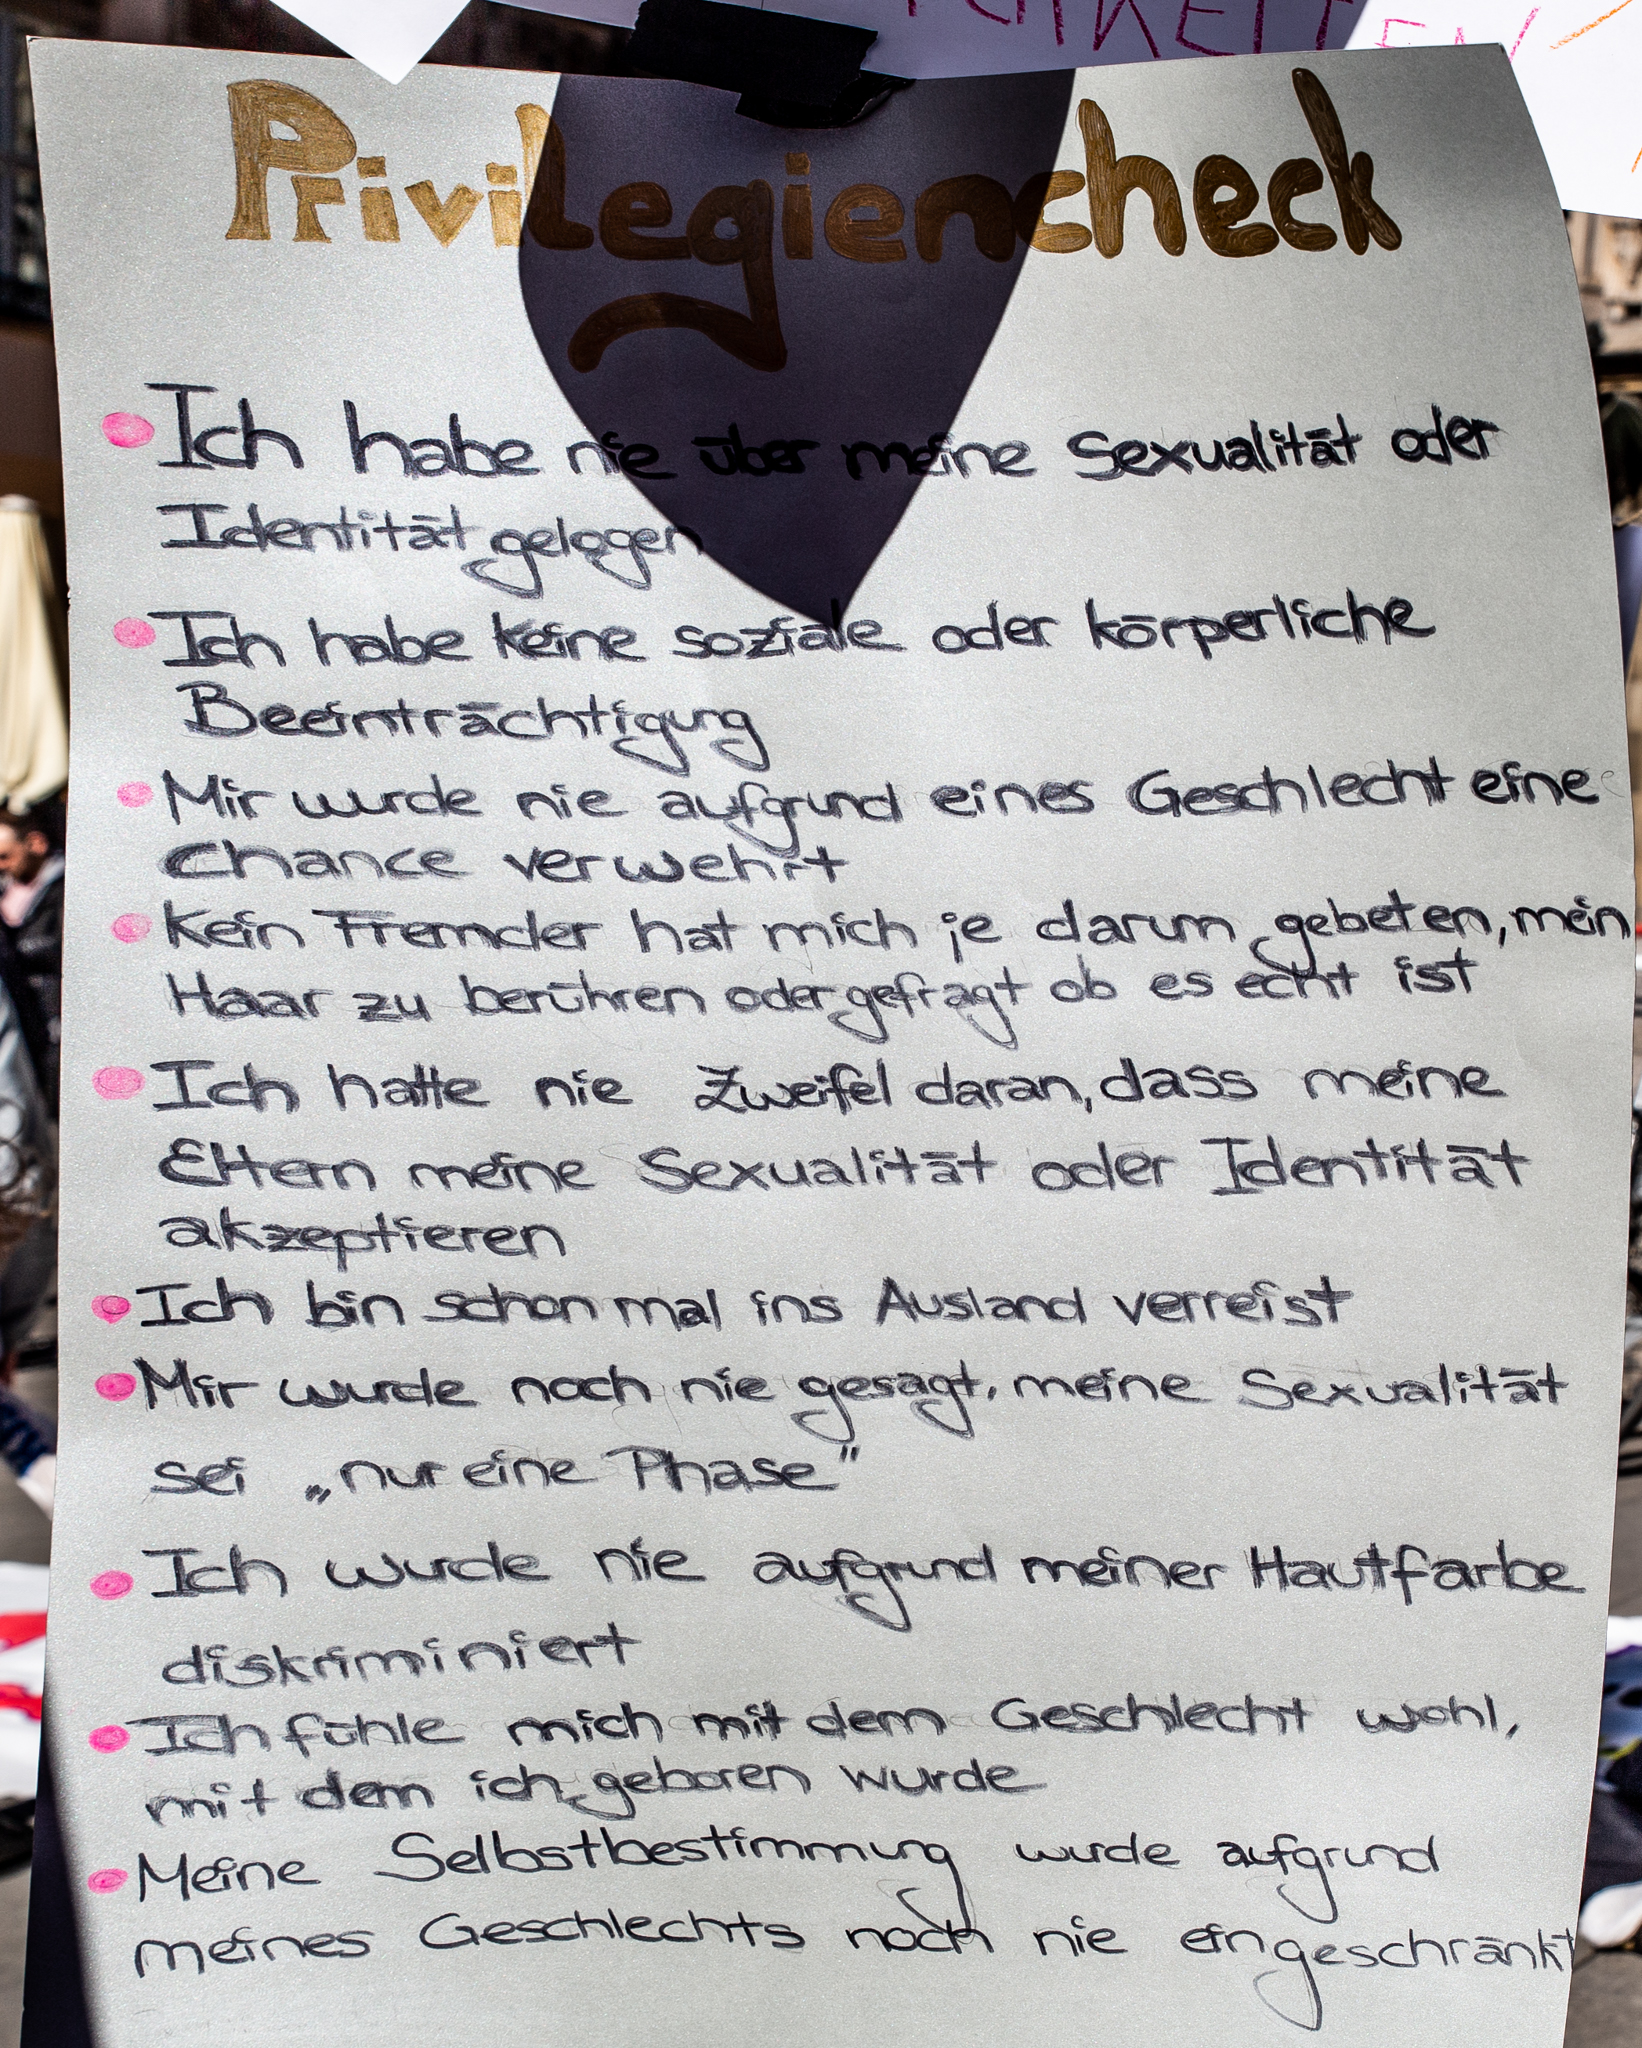 Privilegiencheck
Ich habe nie über meine Sexualität oder
Identität gelogen
Ich habe keine soziale oder körperliche
Beeinträchtigung
Mir wurde nie aufgrund eines Geschlecht eine
Chance verwehrt
Kein Fremder hat mich je darum gebeten, mein
Haar zu berühren oder gefragt ob es echt ist
Ich hatte nie Zweifel daran, dass meine
Eltern meine Sexualität oder Identität
akzeptieren
Ich bin schon mal ins Ausland verreist
Mir wurde noch nie gesagt, meine Sexualität
sei „nur eine Phase"
Ich wurde nie aufgrund meiner Hautfarbe
diskriminiert
Ich fühle mich mit dem Geschlecht wohl,
mit dem ich geboren wurde
Meine Selbstbestimmung wurde aufgrund
meines Geschlechts noch nie eingeschränkt